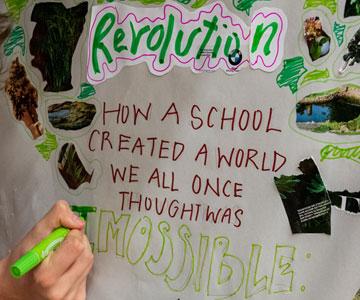 Revolution
HOW A SCHOOL
CREATED A WORLD
WE ALL ONCE
THOUGHT WAS
IMOSSIBLE: